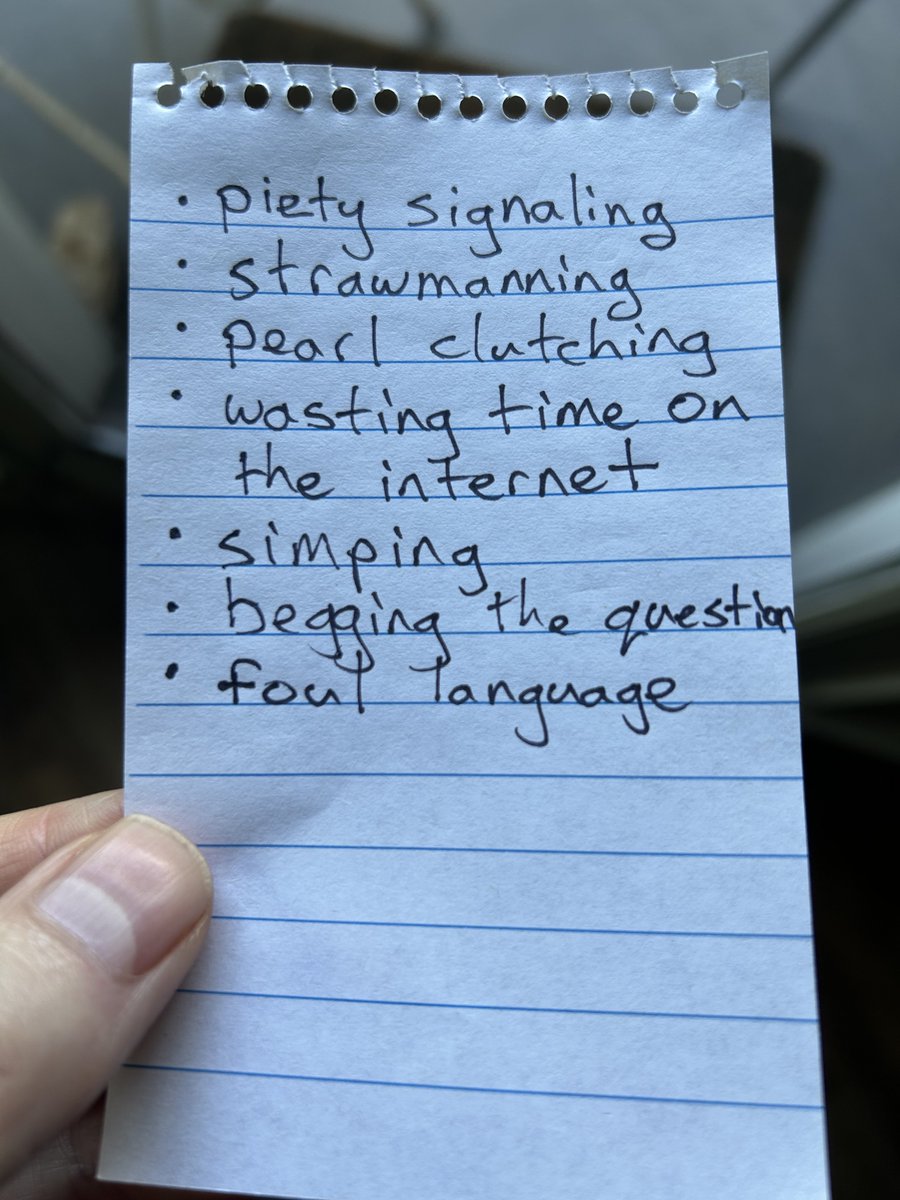 • piety signaling
• strawmanning
• pearl clutching
• wasting time on
the internet
• simping
• begging the question
• foul language